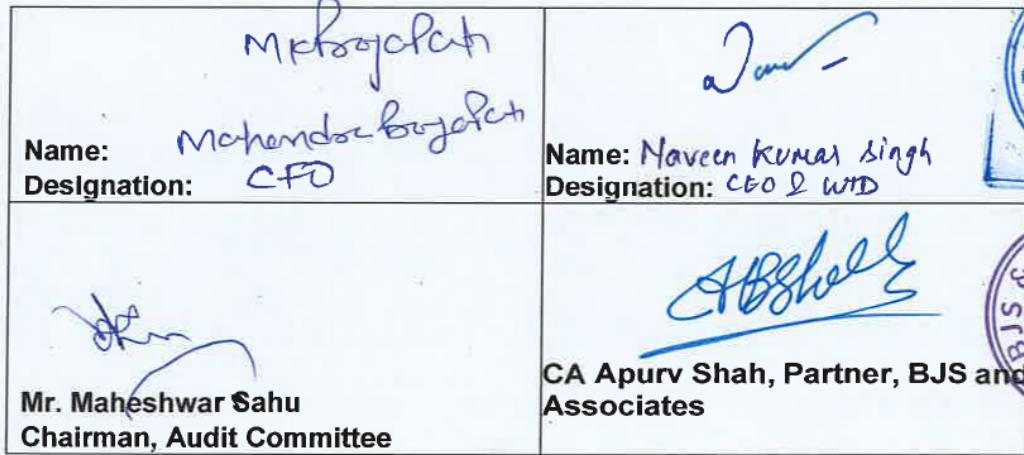 MKPrajapati
Name: Mahendra Prajapati
Designation: CFO
Name: Naveen Kumar Singh
Designation: CEO & WTD
Mr. Maheshwar Sahu
Chairman, Audit Committee
ABShah
CA Apurv Shah, Partner, BJS and
Associates
BJS &